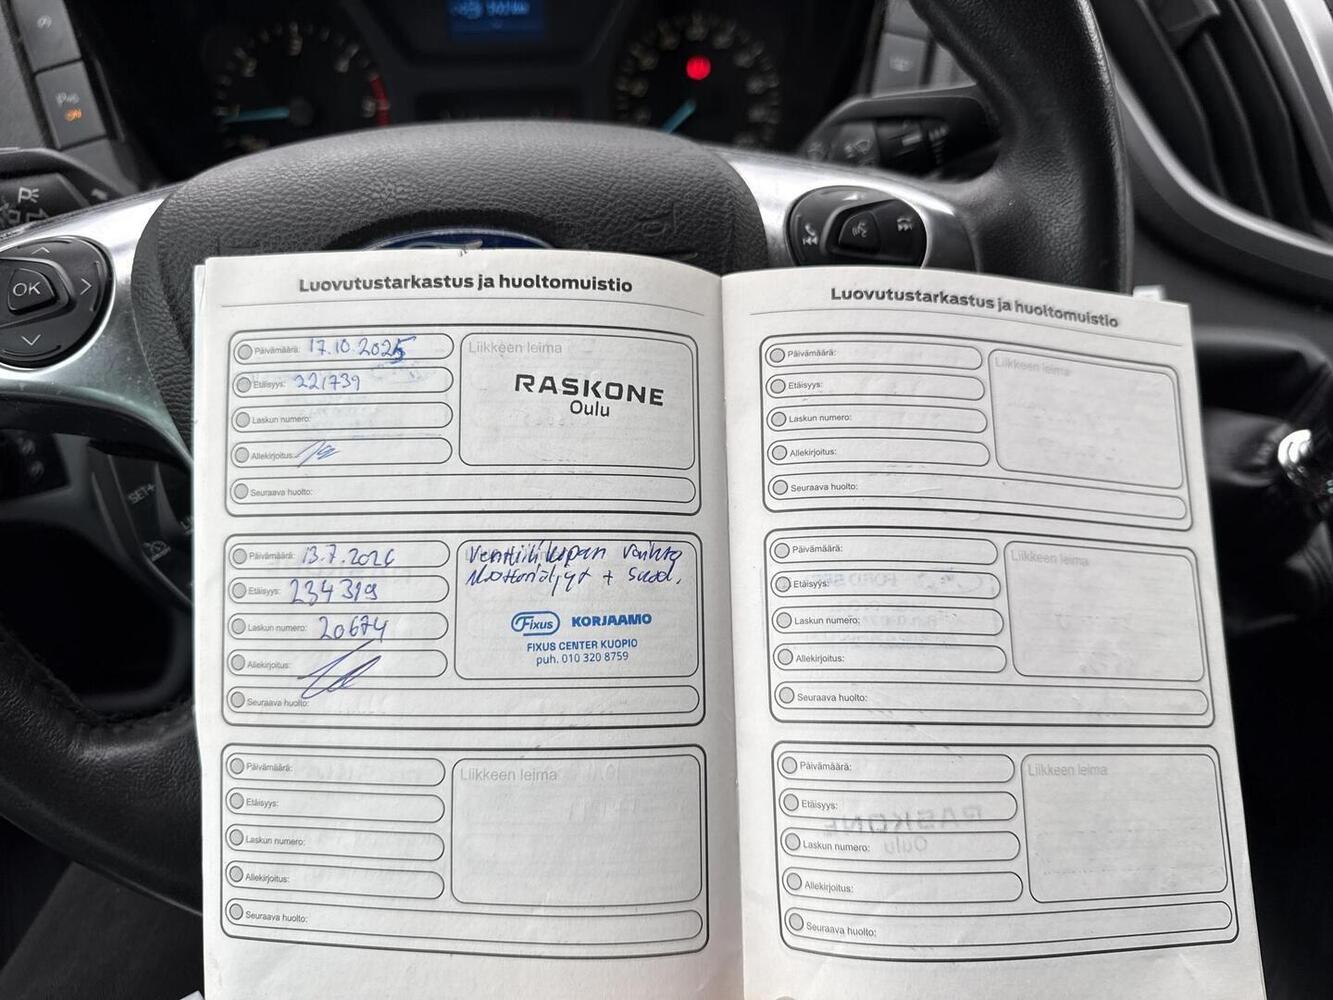 OK
SET+
Luovutustarkastus ja huoltomuistio
Päivämäärä: 17.10.2025
Etäisyys: 221739
Laskun numero:
Allekirjoitus:
Seuraava huolto:
Liikkeen leima
RASKONE
Oulu
Päivämäärä: 13.7.2026
Etäisyys: 234319
Laskun numero: 20674
Allekirjoitus:
Seuraava huolto:
Venttiilikopan vaihto
Moottoriöljyt + suod.
Fixus KORJAAMO
FIXUS CENTER KUOPIO
puh. 010 320 8759
Päivämäärä:
Etäisyys:
Laskun numero:
Allekirjoitus:
Seuraava huolto:
Liikkeen leima
Luovutustarkastus ja huoltomuistio
Päivämäärä:
Etäisyys:
Laskun numero:
Allekirjoitus:
Seuraava huolto:
Liikkeen leima
Päivämäärä:
Etäisyys:
Laskun numero:
Allekirjoitus:
Seuraava huolto:
Liikkeen leima
Päivämäärä:
Etäisyys:
Laskun numero:
Allekirjoitus:
Seuraava huolto:
Liikkeen leima
RASKONE
Oulu